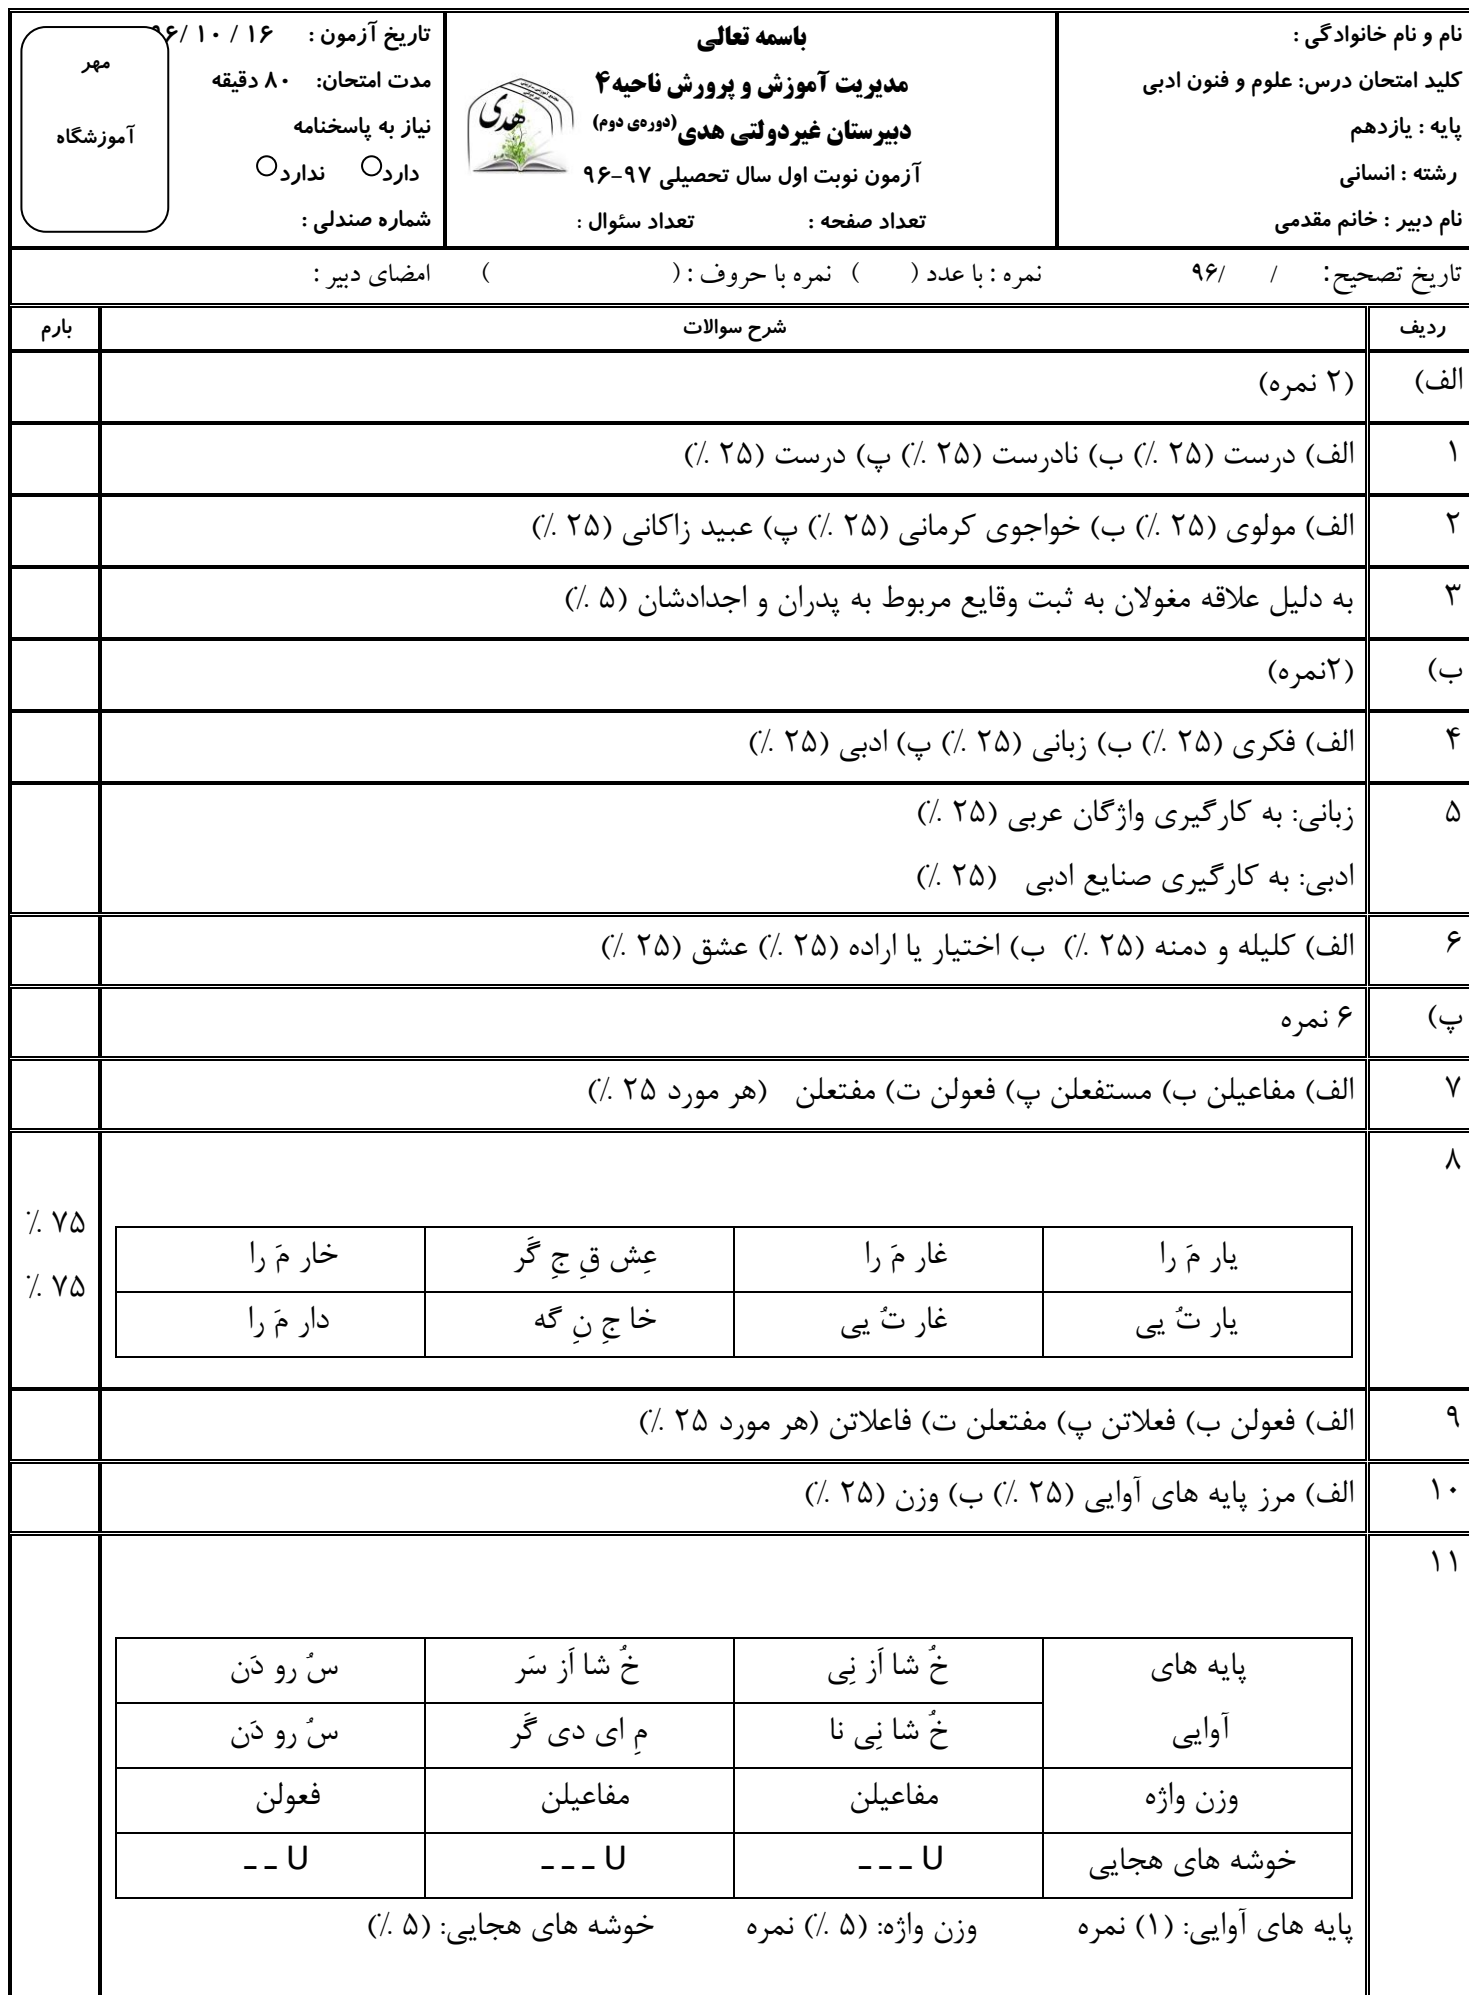 نام و نام خانوادگی :
کلید امتحان درس: علوم و فنون ادبی
پایه : یازدهم
رشته : انسانی
نام دبیر : خانم مقدمی
باسمه تعالی
مدیریت آموزش و پرورش ناحیه۴
دبیرستان غیردولتی هدی(دوره‌ی دوم)
آزمون نوبت اول سال تحصیلی ۹۷-۹۶
تعداد صفحه : تعداد سئوال :
هدی
تاریخ آزمون : ۱۶ / ۱۰ /۹۶
مدت امتحان: ۸۰ دقیقه
نیاز به پاسخنامه
دارد ندارد
شماره صندلی :
مهر
آموزشگاه
تاریخ تصحیح: / /۹۶ نمره : با عدد ( ) نمره با حروف : ( ) امضای دبیر :
ردیف شرح سوالات بارم
الف) (۲ نمره)
۱ الف) درست (۲۵ ٪) ب) نادرست (۲۵ ٪) پ) درست (۲۵ ٪)
۲ الف) مولوی (۲۵ ٪) ب) خواجوی کرمانی (۲۵ ٪) پ) عبید زاکانی (۲۵ ٪)
۳ به دلیل علاقه مغولان به ثبت وقایع مربوط به پدران و اجدادشان (۵ ٪)
ب) (۲نمره)
۴ الف) فکری (۲۵ ٪) ب) زبانی (۲۵ ٪) پ) ادبی (۲۵ ٪)
۵ زبانی: به کارگیری واژگان عربی (۲۵ ٪)
ادبی: به کارگیری صنایع ادبی (۲۵ ٪)
۶ الف) کلیله و دمنه (۲۵ ٪) ب) اختیار یا اراده (۲۵ ٪) عشق (۲۵ ٪)
پ) ۶ نمره
۷ الف) مفاعیلن ب) مستفعلن پ) فعولن ت) مفتعلن (هر مورد ۲۵ ٪)
۸
یار مَ را غار مَ را عِش قِ جِ گَر خار مَ را ۷۵ ٪
یار تُ یی غار تُ یی خا جِ نِ گه دار مَ را ۷۵ ٪
۹ الف) فعولن ب) فعلاتن پ) مفتعلن ت) فاعلاتن (هر مورد ۲۵ ٪)
۱۰ الف) مرز پایه های آوایی (۲۵ ٪) ب) وزن (۲۵ ٪)
۱۱
پایه های خُ شا اَز نِی خُ شا اَز سَر سُ رو دَن
آوایی خُ شا نِی نا مِ ای دی گَر سُ رو دَن
وزن واژه مفاعیلن مفاعیلن فعولن
خوشه های هجایی U – – – U – – – U – –
پایه های آوایی: (۱) نمره وزن واژه: (۵ ٪) نمره خوشه های هجایی: (۵ ٪)